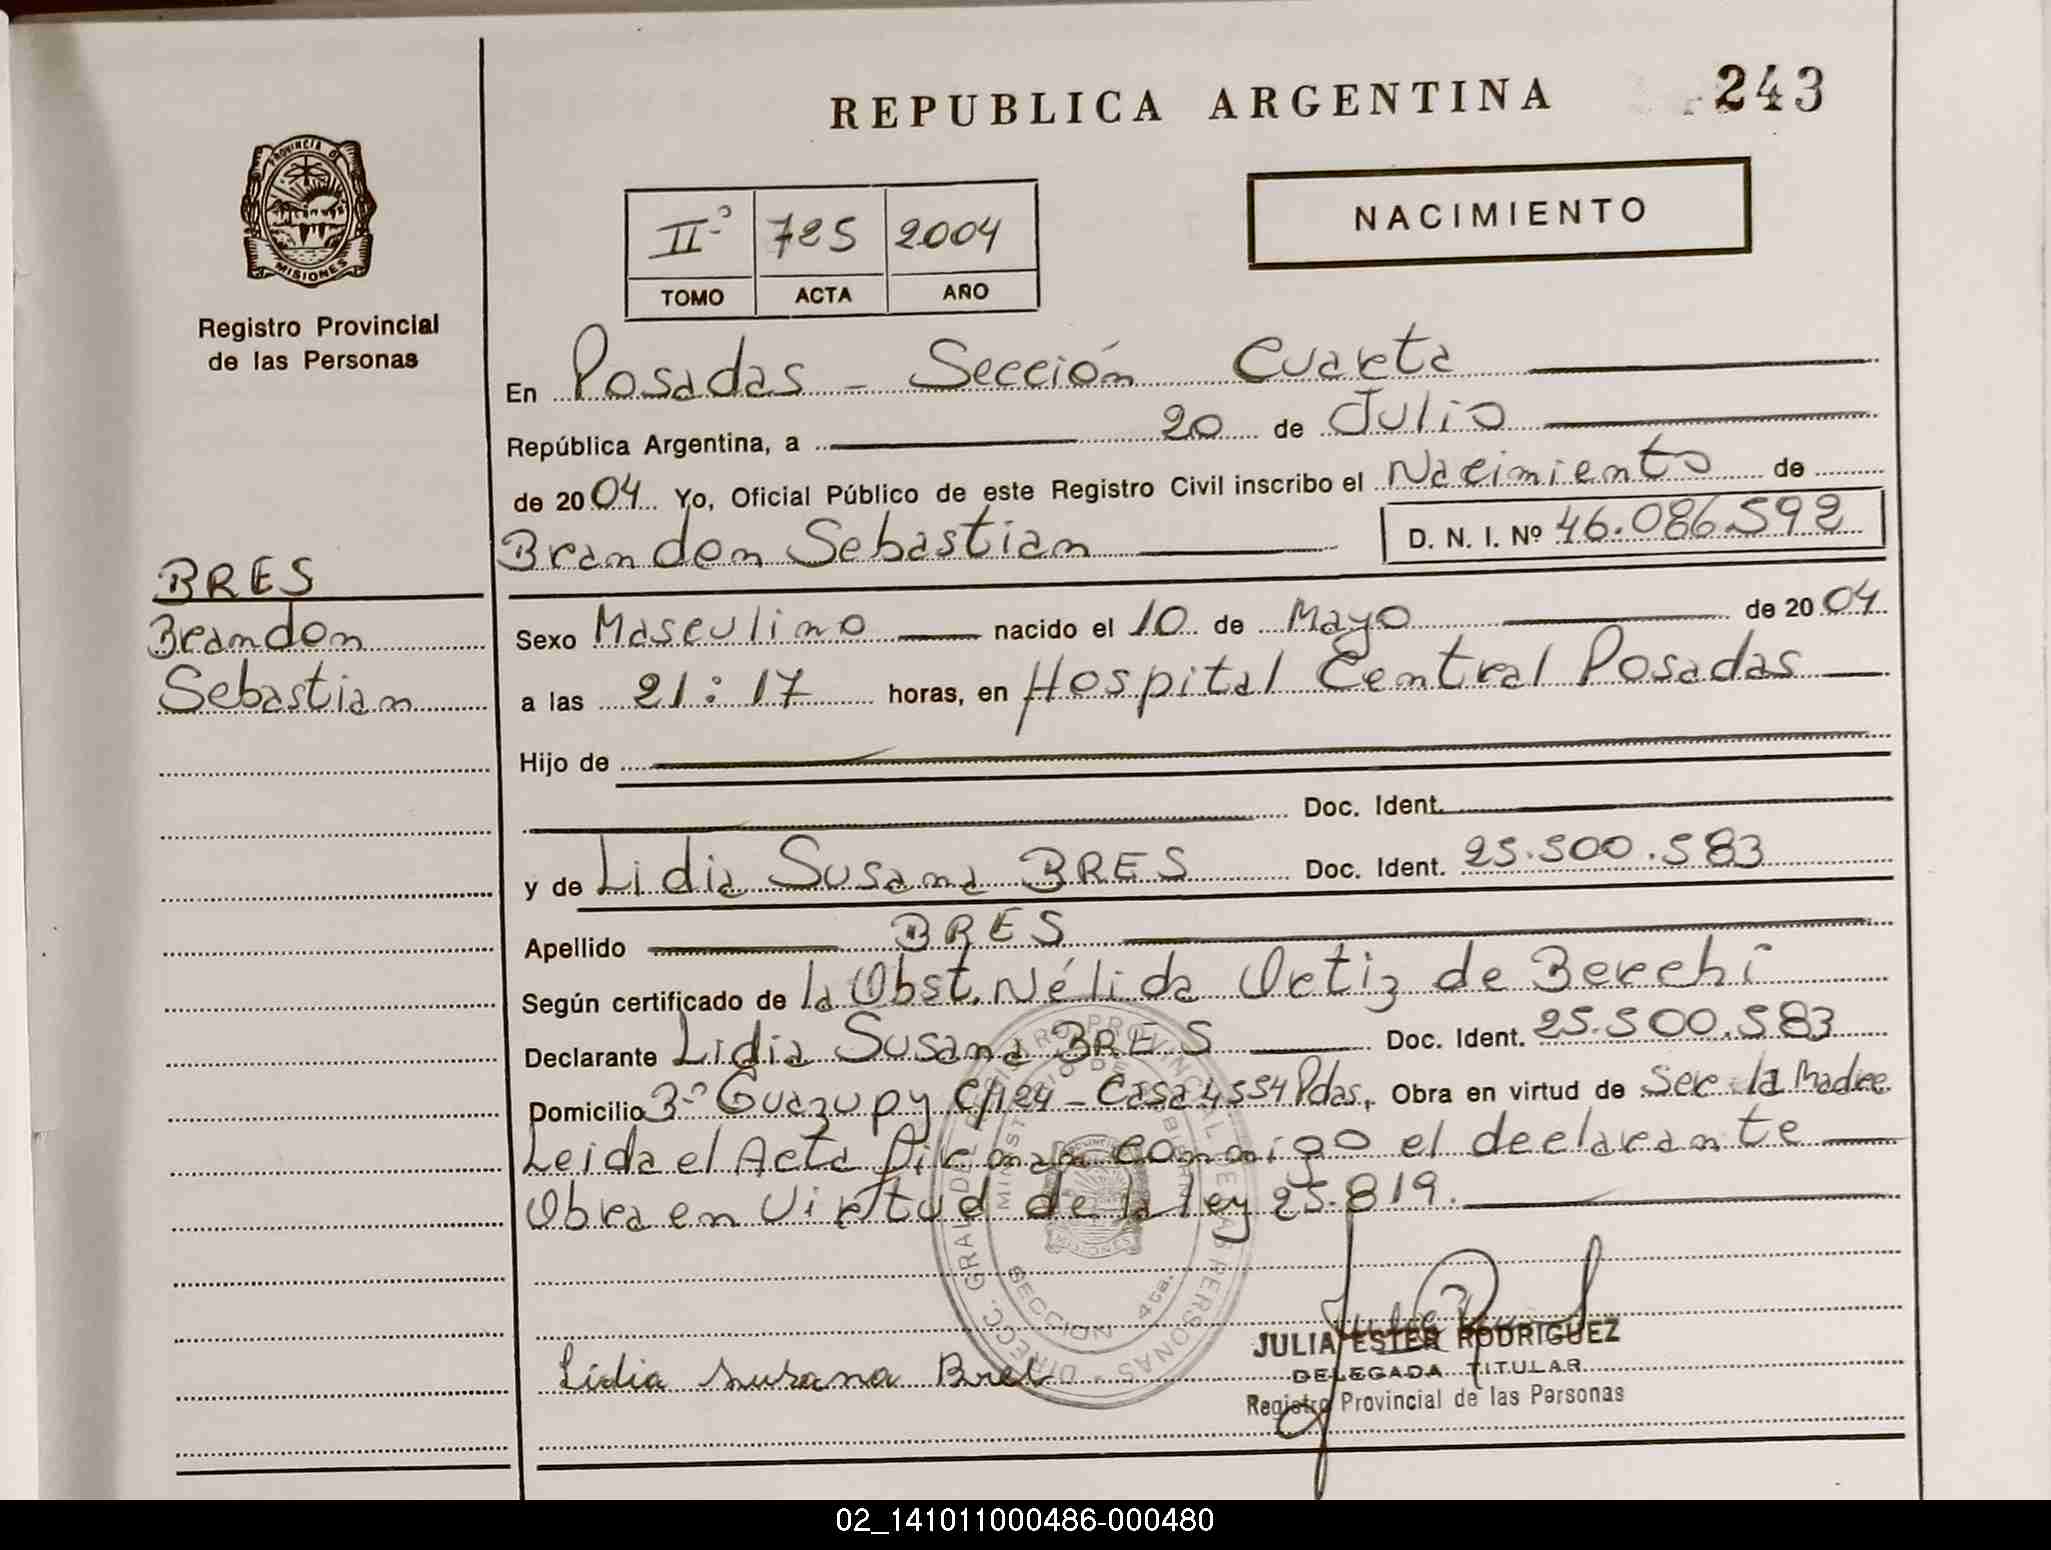 REPUBLICA ARGENTINA
243
PROVINCIA DE
MISIONES
Registro Provincial
de las Personas
IIº 725 2004
TOMO ACTA AÑO
NACIMIENTO
En Posadas - Sección Cuarta
República Argentina, a 20 de Julio
de 2004 Yo, Oficial Público de este Registro Civil inscribo el Nacimiento de
Brandon Sebastian D. N. I. Nº 46.086.592
BRES
Brandon
Sebastian
Sexo Masculino nacido el 10 de Mayo de 2004
a las 21:17 horas, en Hospital Central Posadas
Hijo de
Doc. Ident.
y de Lidia Susana BRES Doc. Ident. 25.500.583
Apellido BRES
Según certificado de la Obst. Nélida Ortiz de Berchi
Declarante Lidia Susana BRES Doc. Ident. 25.500.583
Domicilio 3º Guazupy Ch24 - Casa 4554 Pdas, Obra en virtud de Ser la Madre
Leida el Acta firman conmigo el declarante
Obra en Virtud de la ley 25.819.
DIRECC. GRAL. DE REGISTRO PROVINCIAL DE LAS PERSONAS
MINISTERIO DE GOBIERNO
MISIONES
SECCION 4ta.
Lidia Susana Bres
JULIA ESTER RODRIGUEZ
DELEGADA TITULAR
Registro Provincial de las Personas
02_141011000486-000480